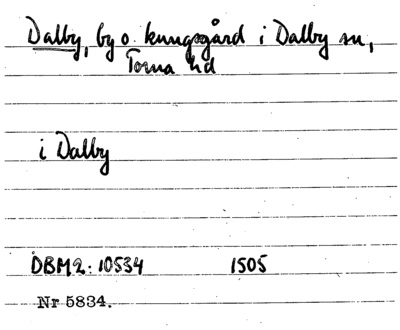 Dalby, by o. kungsgård i Dalby sn,
Torna hd
i Dalby
DBM2: 10534 1505
Nr 5834.